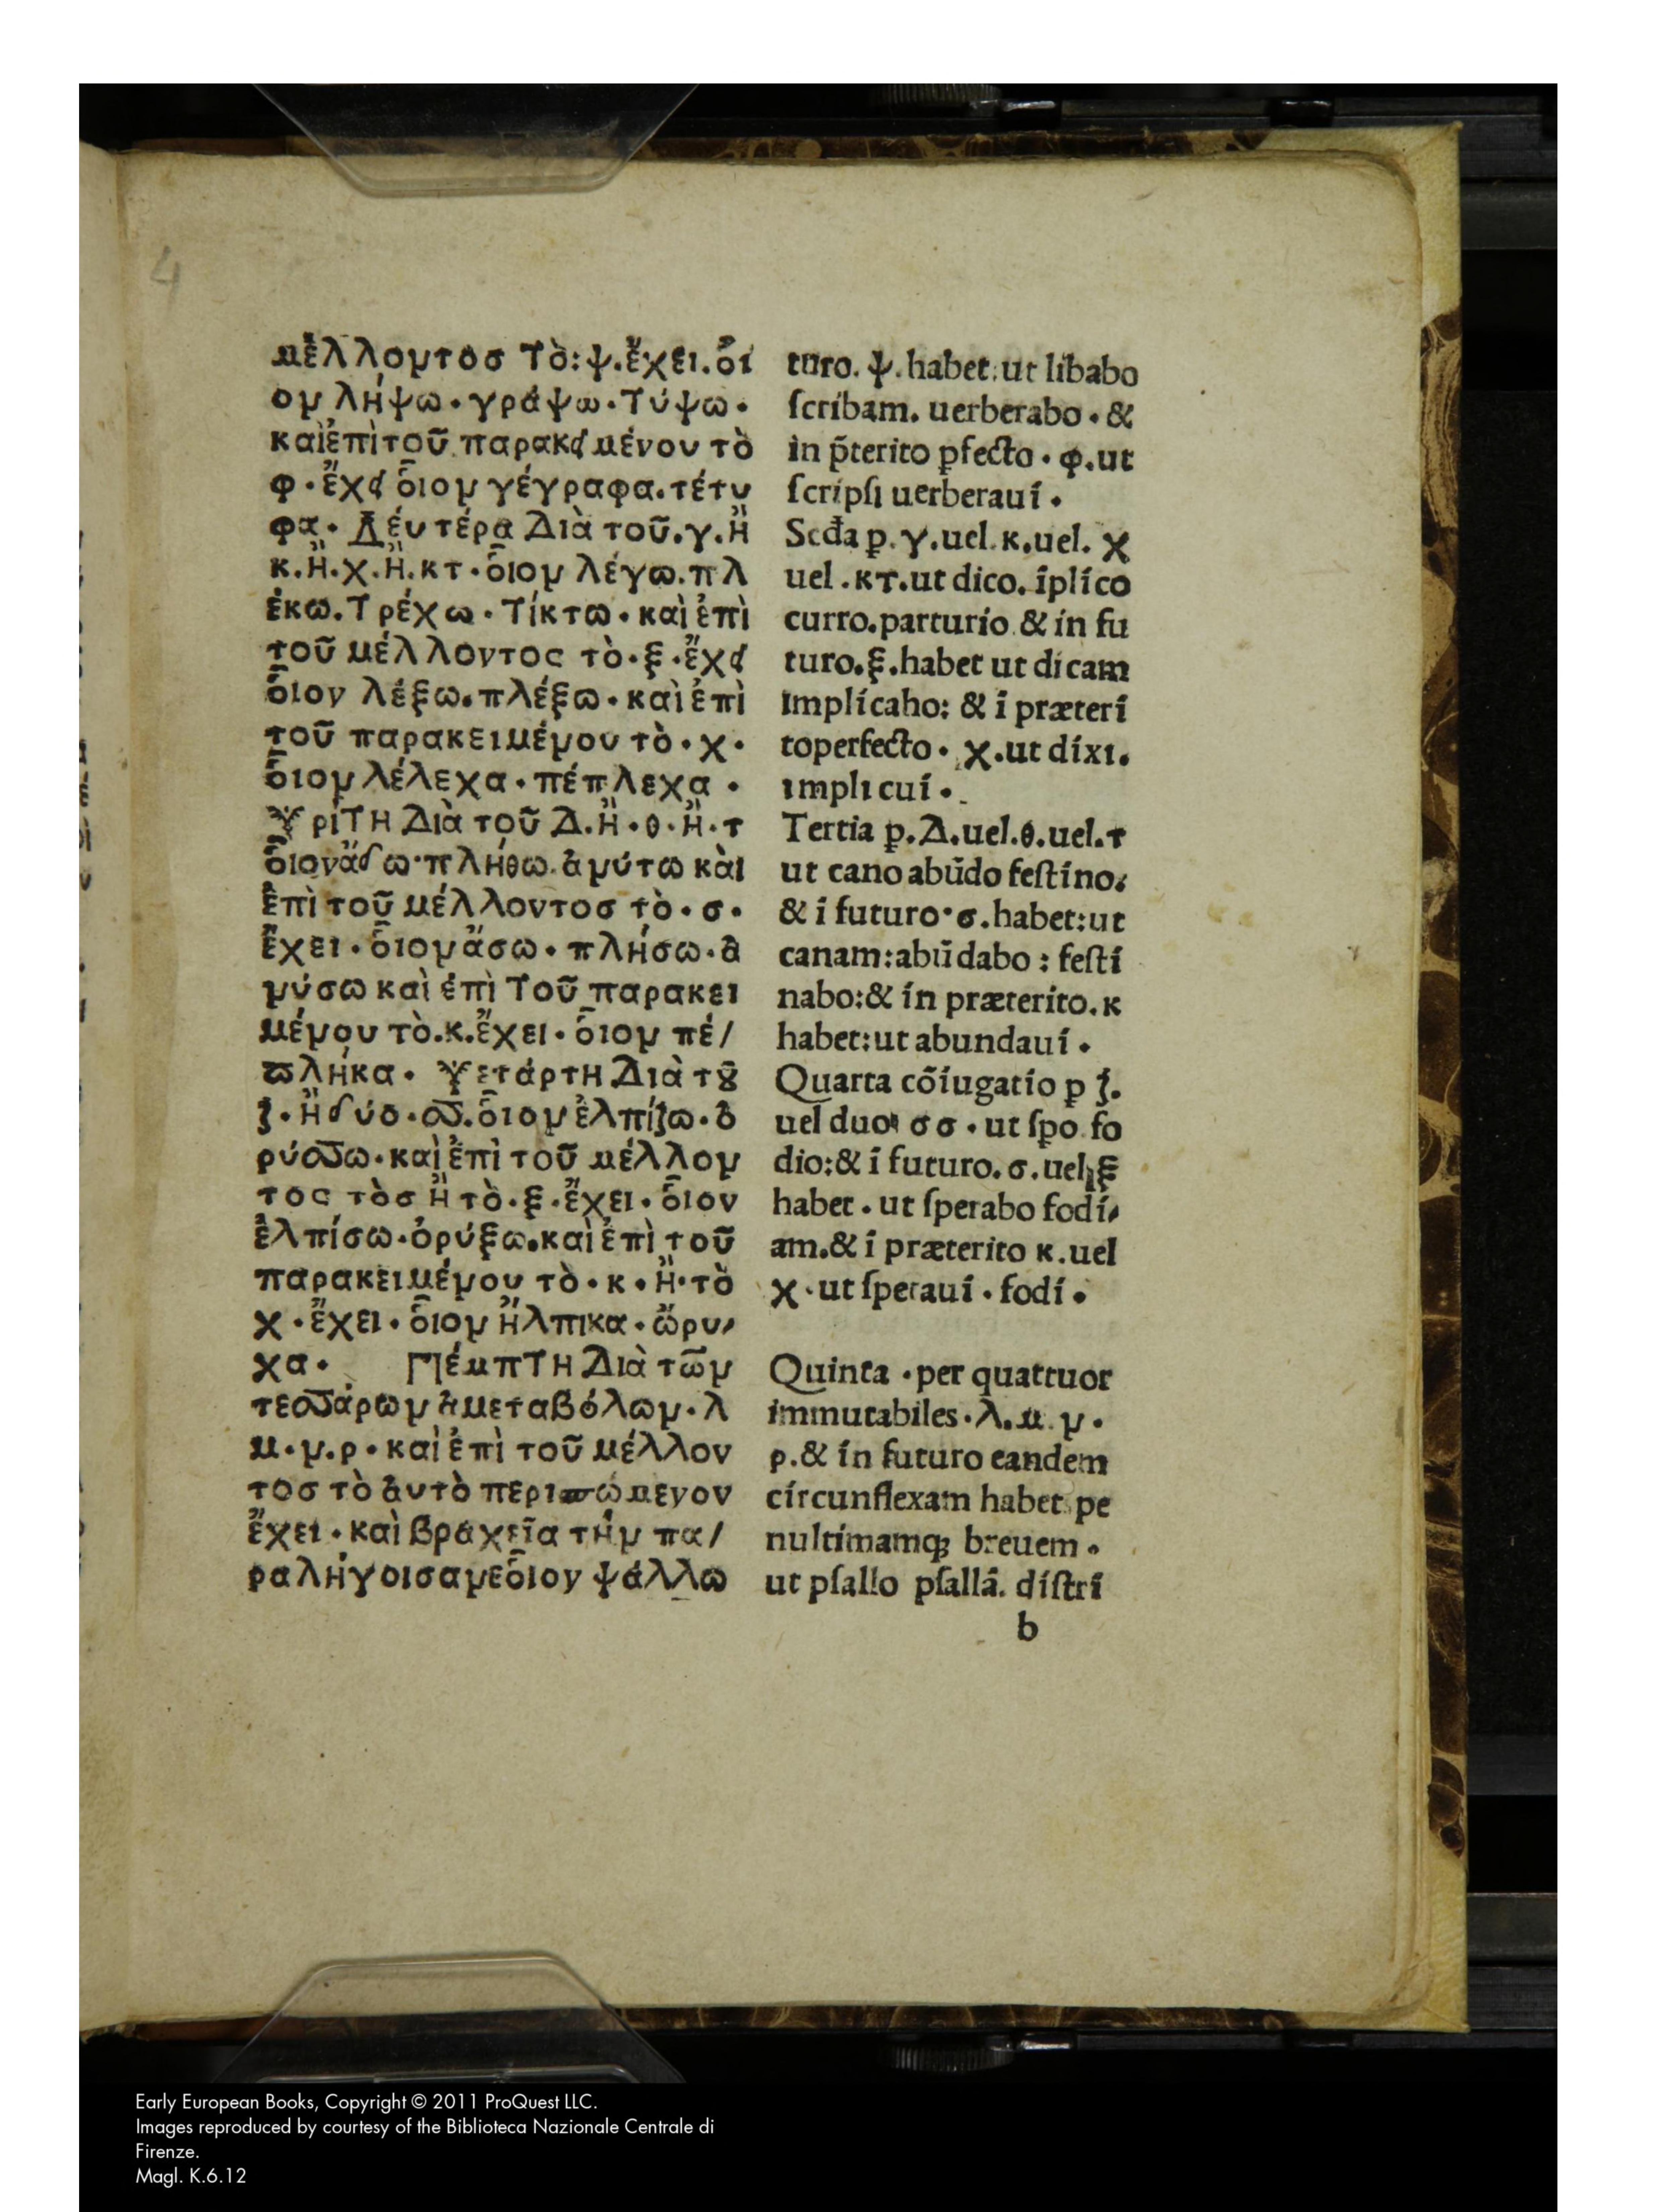 4
μέλλοντοσ τὸ:ψ.ἔχει.ὅι
ον λήψω·γράψω·τύψω·
καὶἐπὶτοῦ παρακειμένου τὸ
φ·ἔχει ὅιον γέγραφα.τέτυ
φα· Δέυτέρα Διὰ τοῦ.γ.ἢ
κ.ἢ.χ.ἢ.κτ·ὅιον λέγω.πλ
έκω.Τρέχω·Τίκτω·καὶ ἐπὶ
τοῦ μέλλοντος τὸ·ξ·ἔχει
ὅιον λέξω.πλέξω·καὶ ἐπὶ
τοῦ παρακειμένου τὸ·χ·
ὅιον λέλεχα·πέπλεχα·
Τρίτη Διὰ τοῦ Δ.ἢ·θ·ἢ·τ
ὅιονἄδω·πλήθω.ἀνύτω κὰι
ἐπὶ τοῦ μέλλοντοσ τὸ·σ·
ἔχει·ὅιονἄσω·πλήσω·ἀ
νύσω καὶ ἐπὶ Τοῦ παρακει
μένου τὸ.κ.ἔχει·ὅιον πέ/
πλήκα· Τετάρτη Διὰ τȣ͂
ζ·ἢ δύο·σσ.ὅιον ἐλπίζω·ὀ
ρύσσω·καὶ ἐπὶ τοῦ μέλλον
τος τὸσ ἢ τὸ·ξ·ἔχει·ὅιον
ἐλπίσω·ὀρύξω.καὶ ἐπὶ τοῦ
παρακειμένου τὸ·κ·ἢ·τὸ
χ·ἔχει·ὅιον ἤλπικα·ὤρυ/
χα· Πέμπτη Διὰ τῶν
τεσσάρων ἀμεταβόλων·λ
μ·ν.ρ·καὶ ἐπὶ τοῦ μέλλον
τοσ τὸ ἀυτὸ περισπώμενον
ἔχει·καὶ βραχεῖα τὴν πα/
ραλήγοισανεὅιον ψάλλω
turo. ψ.habet:ut libabo
ſcribam. uerberabo·&
in p̄terito ꝑfecto·φ.ut
ſcripſi uerberaui·
Scđa ꝑ.γ.uel.κ.uel. χ
uel.κτ.ut dico. īplico
curro.parturio & in fu
turo.ξ.habet ut dicam
implicaho: & ī præteri
toperfecto· χ.ut dixi.
implicui·
Tertia ꝑ.Δ.uel.θ.uel.τ
ut cano abūdo feſtino:
& ī futuro·σ.habet:ut
canam:abūdabo: feſti
nabo:& in præterito.κ
habet:ut abundaui·
Quarta cōiugatio ꝑ ζ.
uel duo σσ·ut ſꝑo fo
dio:& ī futuro.σ.uel ξ
habet·ut ſperabo fodi/
am.& ī præterito κ.uel
χ·ut ſperaui·fodi·
Quinta·per quattuor
immutabiles·λ.μ.ν·
ρ.& in futuro eandem
circunflexam habet pe
nultimamqꝫ breuem·
ut pſallo pſallā. diſtri
b
Early European Books, Copyright © 2011 ProQuest LLC.
Images reproduced by courtesy of the Biblioteca Nazionale Centrale di
Firenze.
Magl. K.6.12